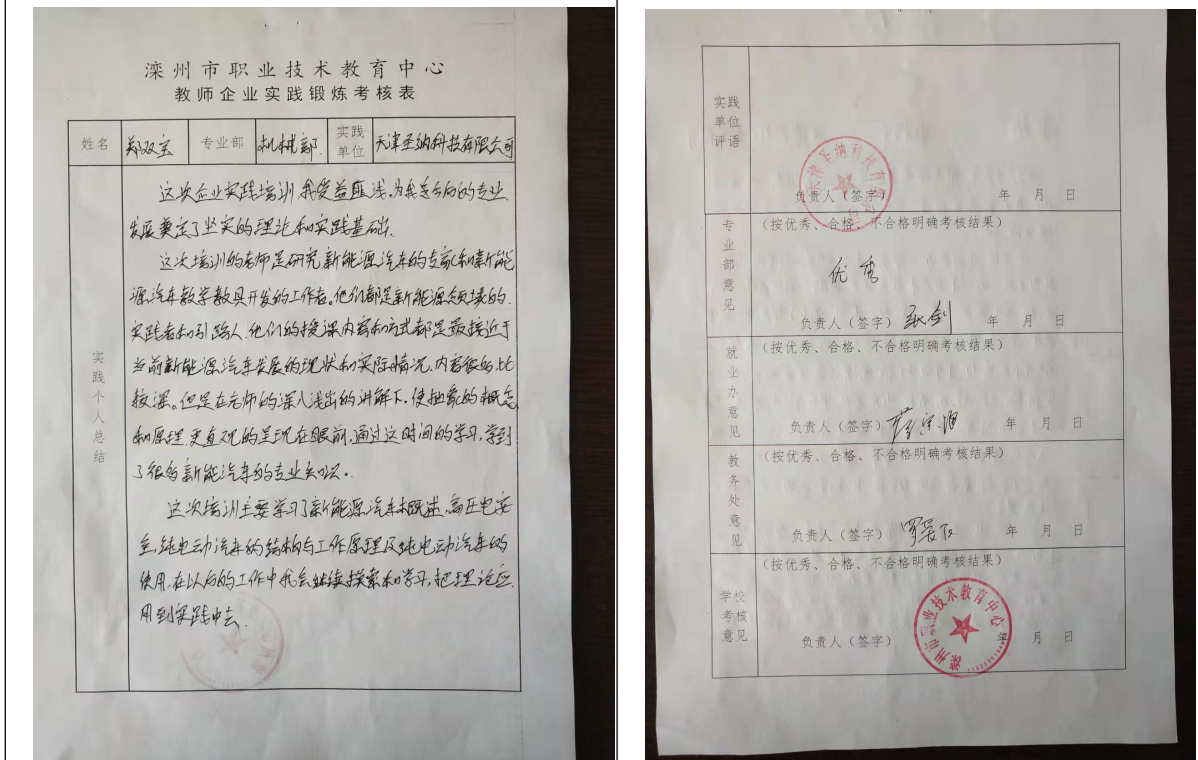 滦州市职业技术教育中心
教师企业实践锻炼考核表
姓名 郑双宝 专业部 机械部 实践单位 天津圣纳科技有限公司
实践个人总结
这次企业实践培训我受益匪浅,为我今后的专业
发展奠定了坚实的理论和实践基础.
这次培训的老师是研究新能源汽车的专家和新能
源汽车教学教具开发的工作者。他们都是新能源领域的.
实践者和引路人,他们的授课内容和方式都是最接近于
当前新能源汽车发展的现状和实际情况,内容很多,比
较深。但是在老师的深入浅出的讲解下,使抽象的概念
和原理更直观的呈现在眼前,通过这时间的学习,学到
了很多新能汽车的专业知识。
这次培训主要学习了新能源汽车概述,高压电安
全,纯电动汽车的结构与工作原理及纯电动汽车的
使用.在以后的工作中我会继续探索和学习,把理论应
用到实践中去.
实践单位评语
负责人(签字) 年 月 日
专业部意见
(按优秀、合格、不合格明确考核结果)
优秀
负责人(签字) 年 月 日
就业办意见
(按优秀、合格、不合格明确考核结果)
负责人(签字) 年 月 日
教务处意见
(按优秀、合格、不合格明确考核结果)
负责人(签字) 年 月 日
学校考核意见
(按优秀、合格、不合格明确考核结果)
负责人(签字) 年 月 日
滦州市职业技术教育中心